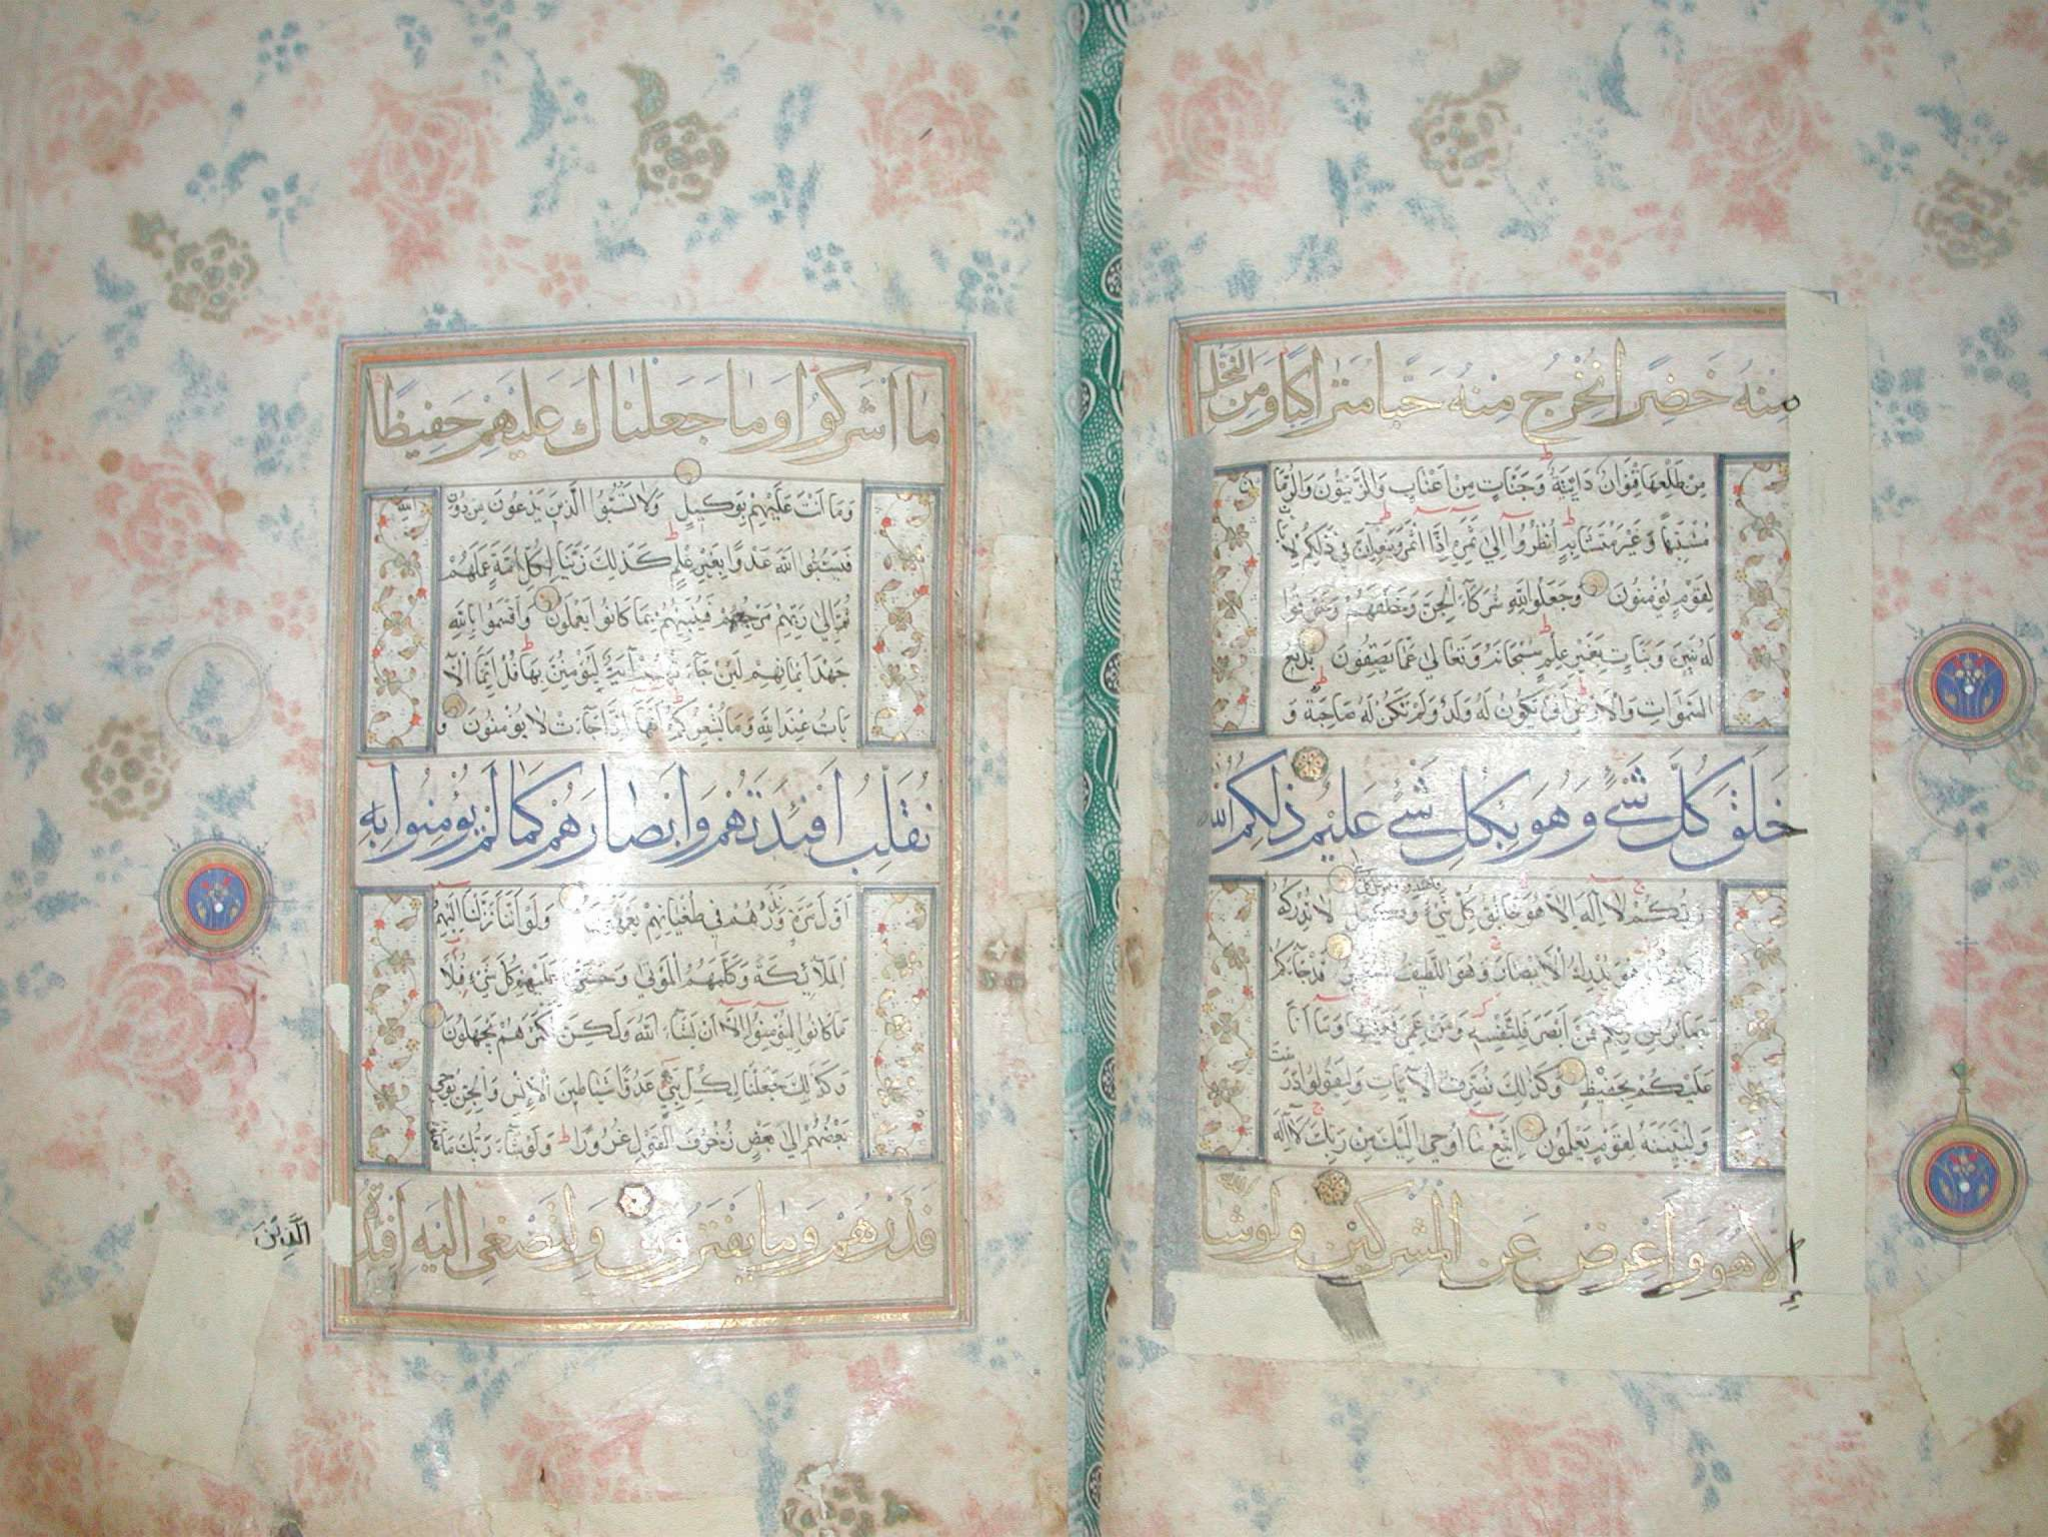 منه خضرا نخرج منه حبا متراكبا ومن النخل
من طلعها قنوان دانية وجنات من اعناب والزيتون والرمان
مشتبها وغير متشابه انظروا الى ثمره اذا اثمر وينعه ان في ذلكم لايات
لقوم يؤمنون وجعلوا لله شركاء الجن وخلقهم وخرقوا
له بنين وبنات بغير علم سبحانه وتعالى عما يصفون بديع
السموات والارض انى يكون له ولد ولم تكن له صاحبة و
خلق كل شئ وهو بكل شئ عليم ذلكم الله
ربكم لا اله الا هو خالق كل شئ لا تدركه
وهو يدرك الابصار وهو اللطيف قد جاءكم
بصائر من ربكم فمن ابصر فلنفسه ومن عمي فعليها وما انا
عليكم بحفيظ وكذلك نصرف الايات وليقولوا درست
ولنبينه لقوم يعلمون اتبع ما اوحي اليك من ربك لا اله
الا هو واعرض عن المشركين ولو شاء الله
ما اشركوا وما جعلناك عليهم حفيظا
وما انت عليهم بوكيل ولا تسبوا الذين يدعون من دون الله
فيسبوا الله عدوا بغير علم كذلك زينا لكل امة عملهم
ثم الى ربهم مرجعهم فينبئهم بما كانوا يعملون واقسموا بالله
جهد ايمانهم لئن جاءتهم اية ليؤمنن بها قل انما الآ
يات عند الله وما يشعركم انها اذا جاءت لا يؤمنون و
نقلب افئدتهم وابصارهم كما لم يؤمنوا به
اول مرة ونذرهم في طغيانهم يعمهون ولو اننا نزلنا اليهم
الملائكة وكلمهم الموتى وحشرنا عليهم كل شئ قبلا
ما كانوا ليؤمنوا الا ان يشاء الله ولكن اكثرهم يجهلون
وكذلك جعلنا لكل نبي عدوا شياطين الانس والجن يوحي
بعضهم الى بعض زخرف القول غرورا ولو شاء ربك ما فعلوه
فذرهم وما يفترون ولتصغى اليه افئدة
الَّذِينَ